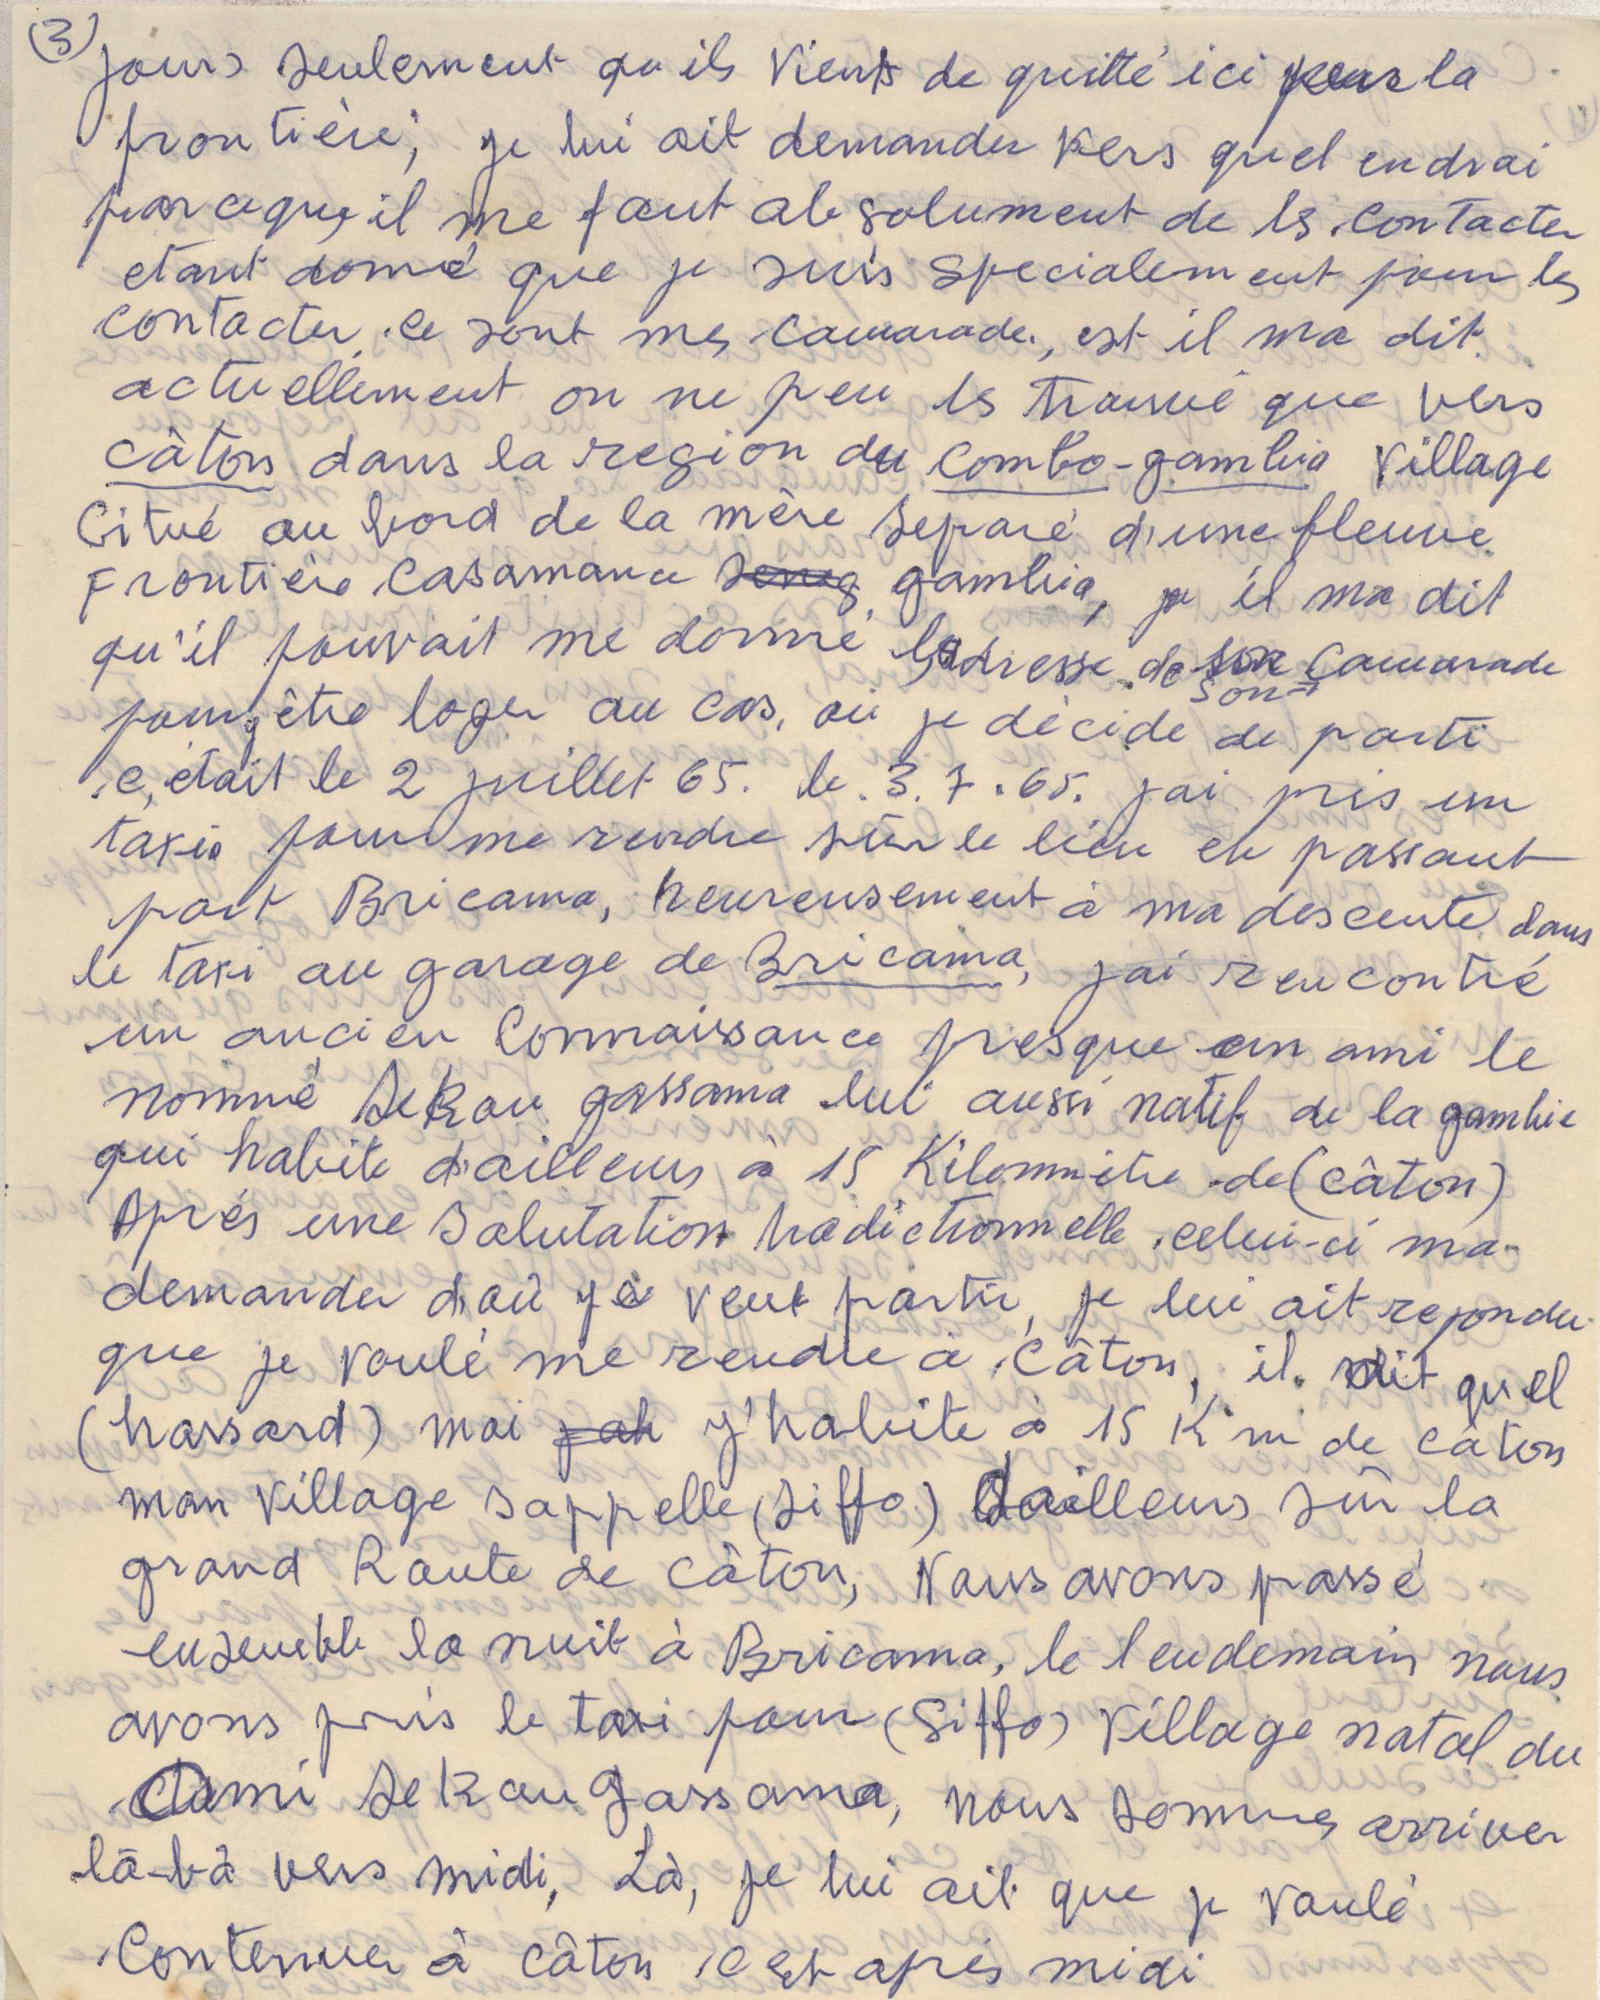 (3)
jours seulement qu'ils vients de quitté ici pour la
frontière, je lui ait demander vers quel endrai
parceque il me faut absolument de ls contacter
etant donné que je suis specialement pour les
contacter. ce sont mes camarade, est il ma dit
actuellement on ne peu ls trouvé que vers
câton dans la region du combo-gambia village
Citué au bord de la mère separé d'une fleuve
Frontière Casamance Seneg gambia, je il ma dit
qu'il pouvait me donné l'adresse de son camarade
son
pour être loger au cas, où je décide de parti
c'était le 2 juillet 65. le 3.7.65. j'ai pris un
taxis pour me rendre sûr le lieu en passant
part Bricama, heureusement à ma descente dans
le taxi au garage de Bricama, j'ai rencontré
un ancien Connaissance presque un ami le
nommé Sekou gassama lui aussi natif de la gambie
qui habite d'ailleurs à 15 Kilommètre de (câton)
Aprés une Salutation tradictionnelle, celui-ci ma-
demander d'où je veut partir, je lui ait repondu
que je voulé me rendre à Câton, il dit quel
(hassard) moi j'habite à 15 Km de câton
mon village sappelle (Siffo) dailleurs sûr la
grand Route de câton, Nous avons passé
ensemble la nuit à Bricama, le lendemain nous
avons pris le taxi pour (Siffo) village natal du
ami Sekou Gassama, nous sommes arriver
là-bà vers midi, Là, je lui ait que je voulé
Contenuer à câton c'est après midi